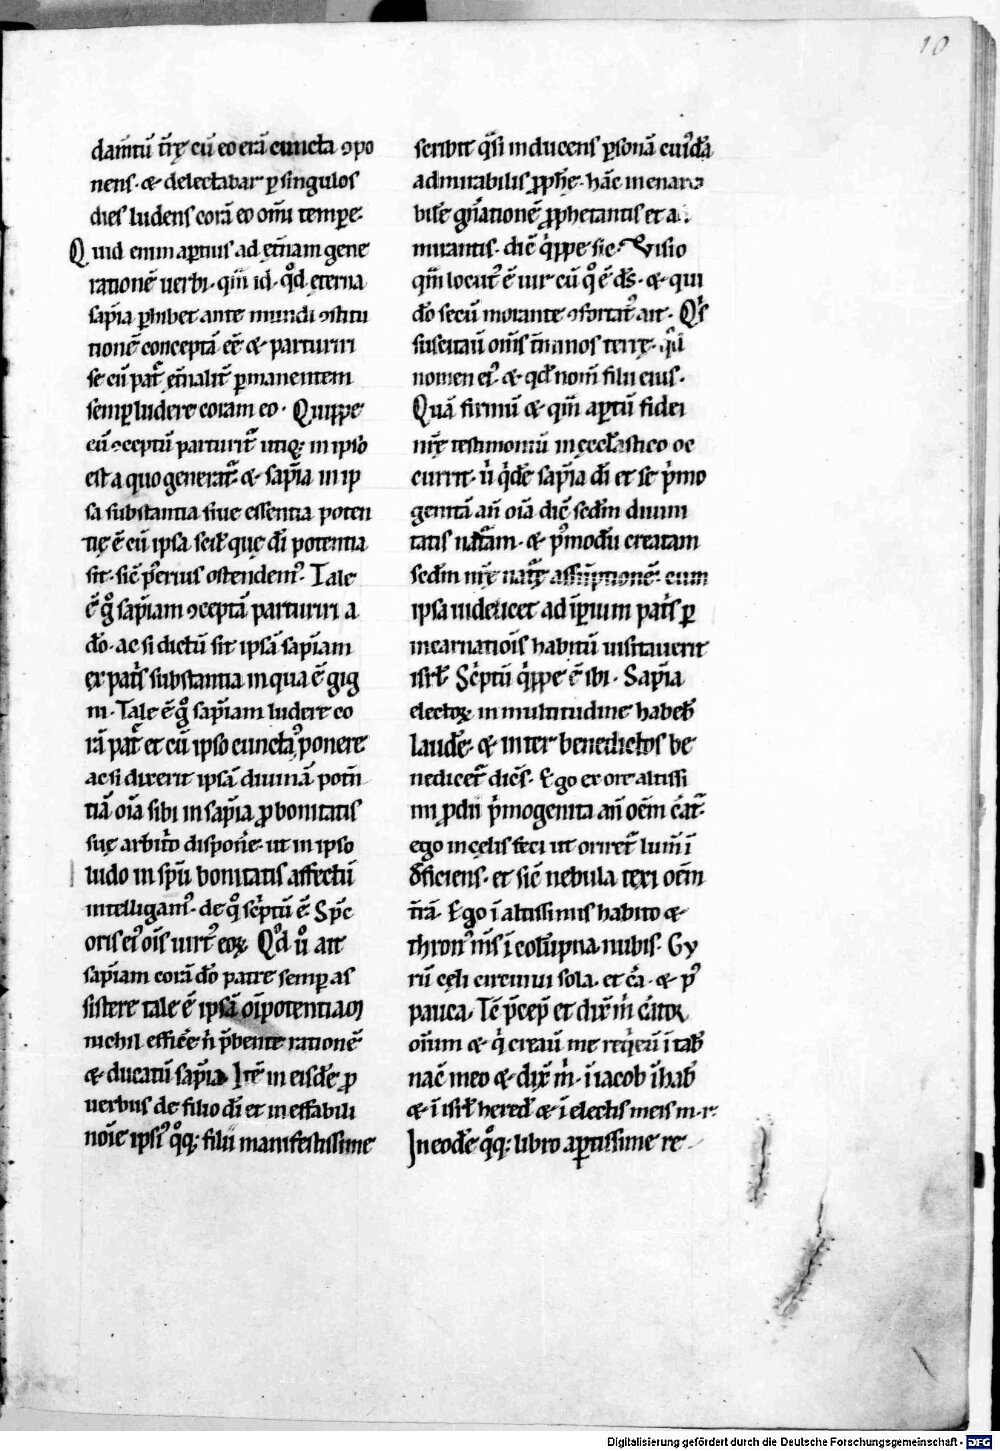 10
dam̄tū t̄rę cū eo erā cuncta ꝯpo
nens· & delectabar ꝑ singulos
dies ludens corā eo om̄i temꝑe·
Quid enim aꝑtius ad ęt̄nam gene
rationē uerbi· qm̄ id· qͦd ęterna
sapīa ꝑhibet ante mundi ꝯstitu
tionē conceptā eē & parturiri
se cū pat̄ ęt̄nalit̄ ꝑmanentem
semꝑ ludere coram eo· Quippe
cū ꝯceptū parturit̄ utiqꝫ in ipso
est a quo generat̄· & sapīa in ip
sa substantia siue essentia poten
tię ē cū ipsa scil̄ quę dī potentia
sit· sic̄ ꝑerius ostendem᷒· Tale
ē gͦ sapīam ꝯceptā parturiri a
dō· ac si dictū sit ipsā sapīam
ex pat̍s substantia in qua ē gig
ni· Tale ē gͦ sapīam ludere co
rā pat̍ et cū ipso cuncta ꝯponere
ac si dixerit ipsā diuinā potn̄
tiā oīa sibi in sapīa ꝓ bonitatis
suę arbit̍o disponē· ut in ipso
ludo in sp̄u bonitatis affectū
intelligam᷒· de qͦ sc̍ptū ē· Sp̄c
oris ei᷒ oīs uirt᷒ eoꝝ· Qͦd ū ait
sapīam corā dō patre semꝑ as
sistere tale ē ipsā oīpotentiam
nichil effic̄e n̍ p̄bente rationē
& ducatū sapīa· Itē in eisdē ꝓ
uerbiis de filio dī et ineffabili
noīe ipsi᷒ qͦqꝫ filii manifestissime
scribit qͣsi inducens ꝑsonā cui᷒dā
admirabilis ꝓph̄ę· hāc inenarra
bilē gn̄ationē ꝓphetantis et a
mirantis· dic̄ q̍ppe sic· Visio
qm̄ locut᷒ ē uir cū qͦ ē dš· & qui
dō secū morante ꝯfortat᷒ ait· Q̍s
suscitauit om̄s t̄minos terrę· qd̄
nomen ei᷒· & qd̄ nom̄ filii eius·
Quā firmū & qm̄ aꝑtū fidei
nr̄ę testimoniū in ęccl̄astico oc
currit· u̍ q̍dē sapīa dī et se p̍mo
genitā an̄ oīa dic̄ sed̄m diuini
tatis natͣam· & p᷒modū creatam
sed̄m nr̄ę natͣę assūptionē· cum
ipsa uidelicet ad īperium pat̍s ꝑ
incarnatiōis habitū uisitauerit
isrł· Sc̍ptū q̍ppe ē ibi· Sapīa
electoꝝ in multitudine habeb̄
laudē· & inter benedictos be
nedicet̄ dicēs· Ego ex ore altissi
mi prodii p̍mogenita an̄ oēm c̄atͣ·
ego in celis feci ut oriret̄ lum̄ ī
deficiens· et sic̄ nebula texi oēm
t̄rā· Ego ī altissimis habito &
thron᷒ m̄s ī colūpna nubis· Gy
rū cęli circuiui sola· et c̄a· & p᷒
pauca· Tc̄ p̄cep̄ et dix̄ m̍ c̄ator
oīum & q̍ creauit me req̍euit ī tab̄
nac̄ meo & dix̄ m̍· ī iacob īhab̄
& ī isrł hered̄ & ī electis meis m· r·
In eodē qͦqꝫ libro aꝑtissime re
Digitalisierung gefördert durch die Deutsche Forschungsgemeinschaft - DFG